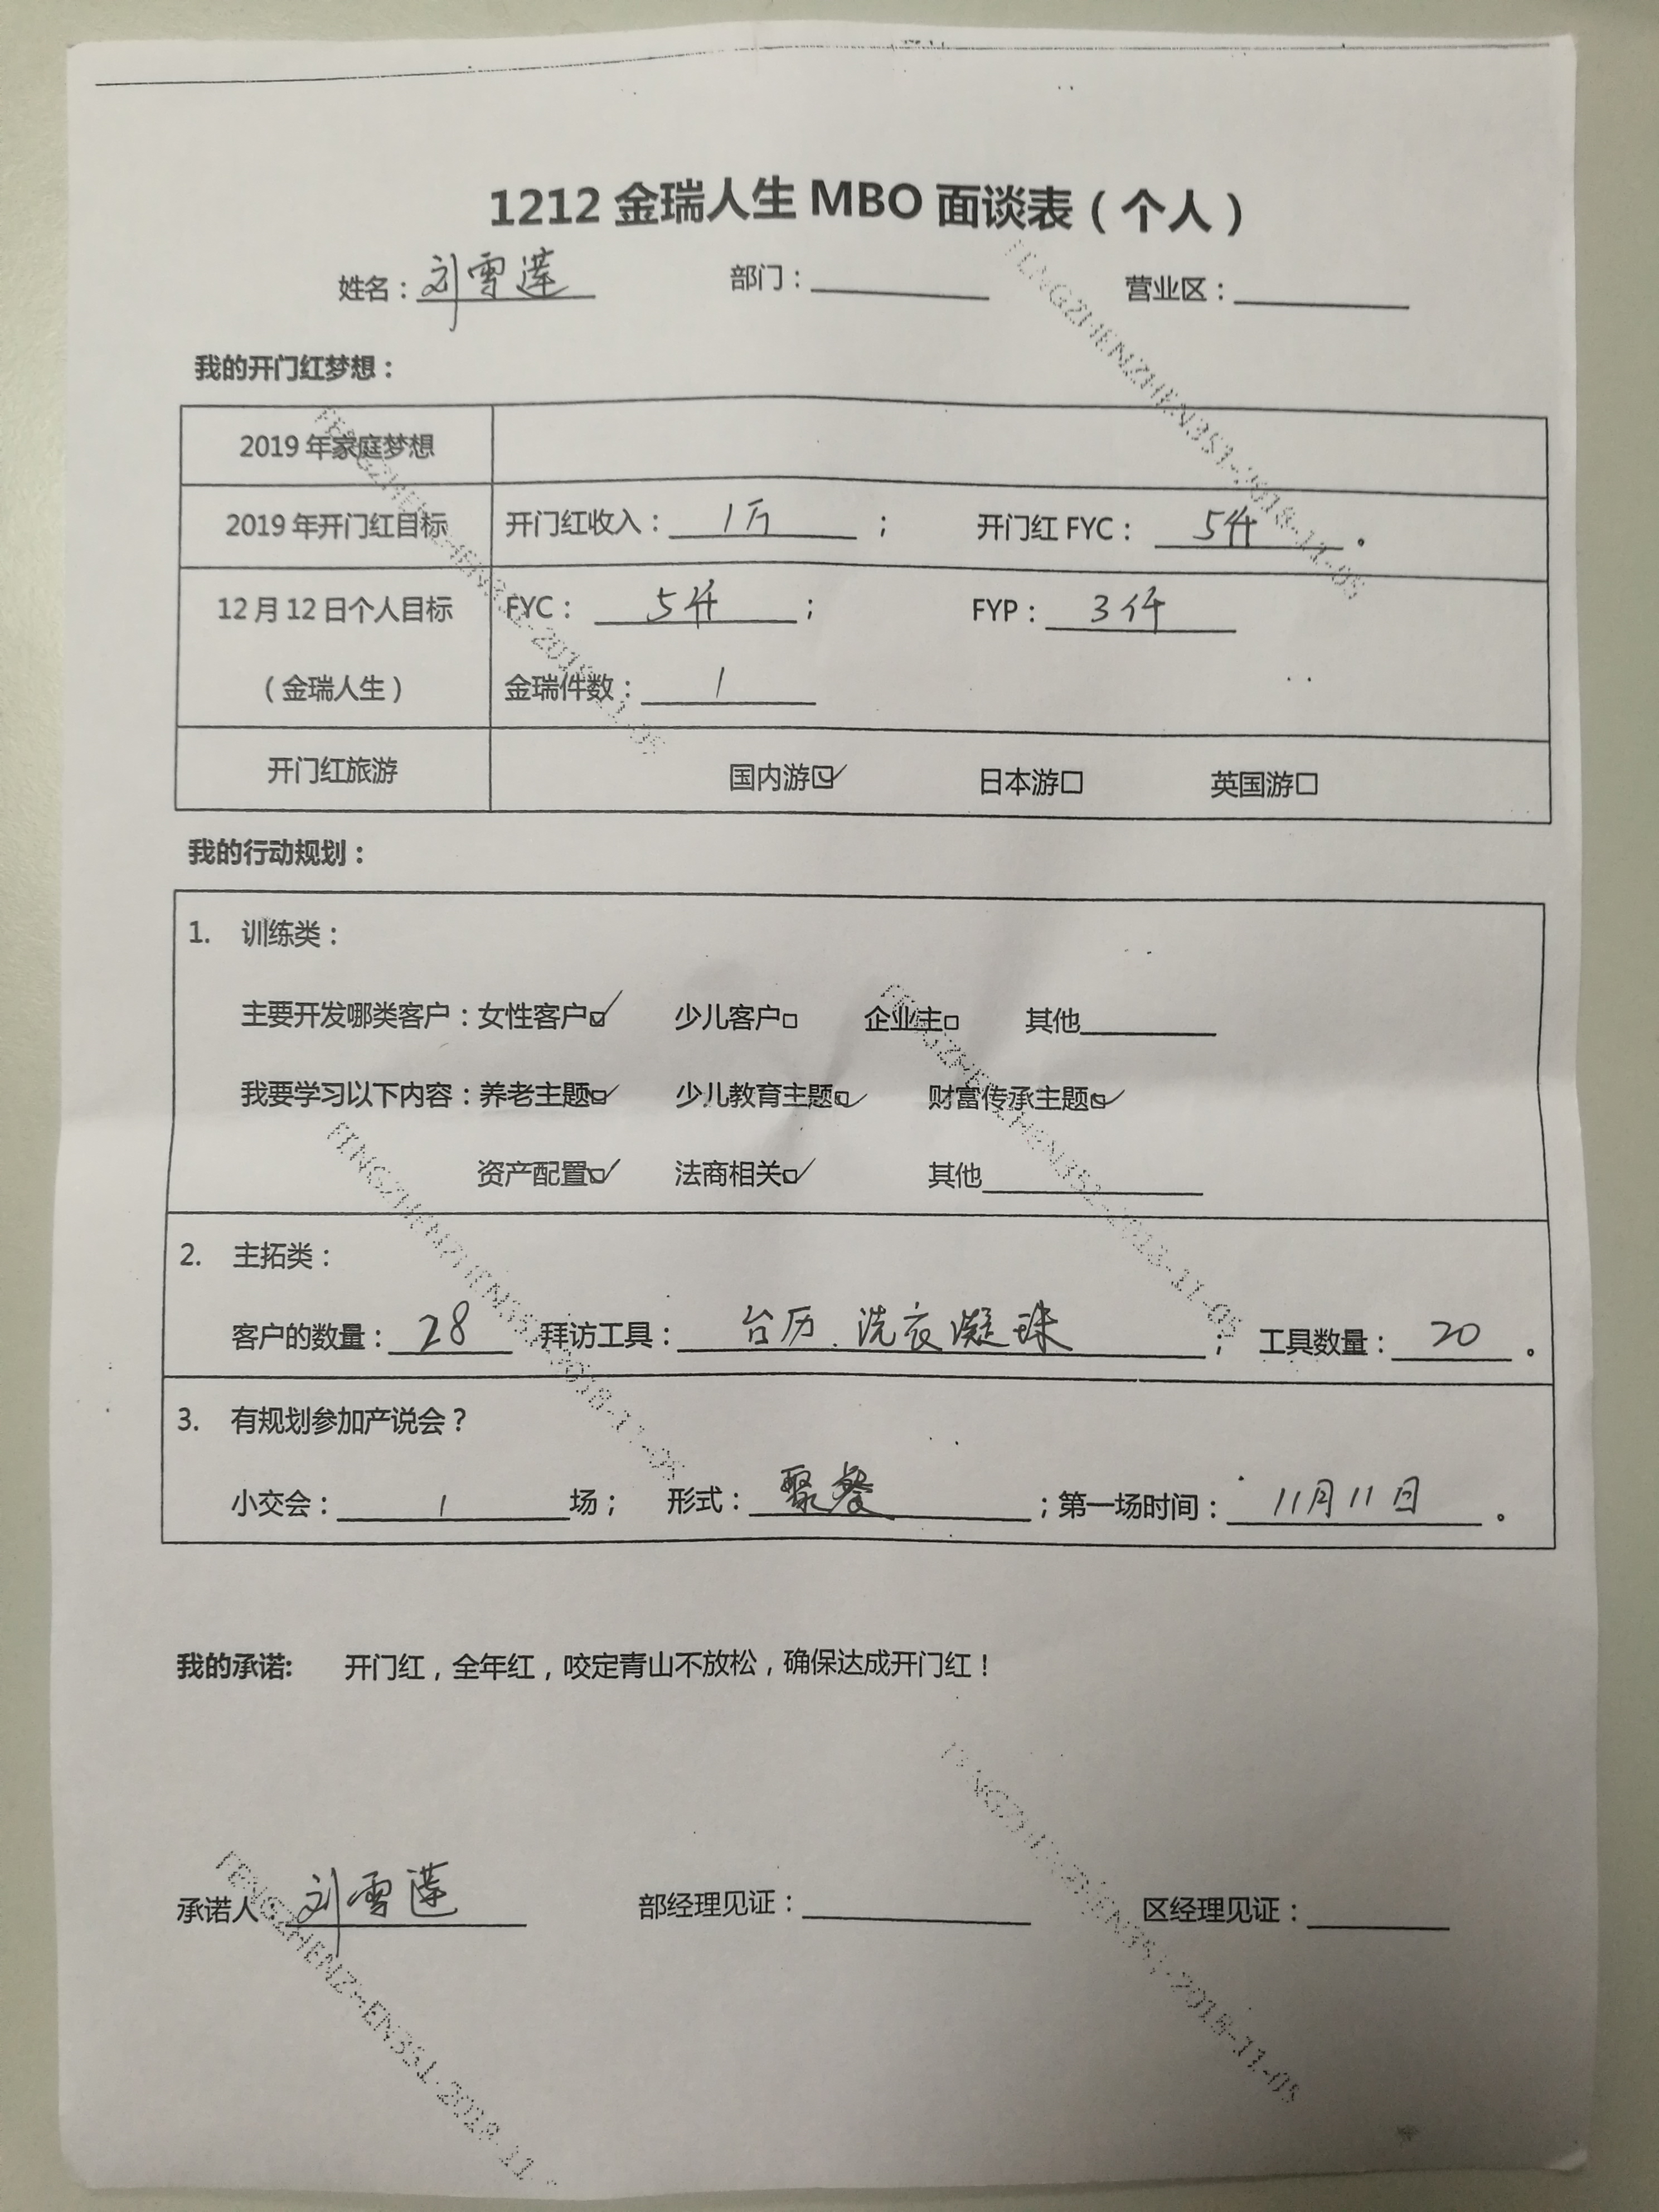 1212 金瑞人生 MBO 面谈表（个人）
姓名：刘雪莲 部门： 营业区：
我的开门红梦想：
2019 年家庭梦想
2019 年开门红目标 开门红收入：1万； 开门红 FYC：5仟。
12 月 12 日个人目标 FYC：5仟； FYP：3仟
（金瑞人生） 金瑞件数：1
开门红旅游 国内游☑ 日本游□ 英国游□
我的行动规划：
1. 训练类：
主要开发哪类客户：女性客户☑ 少儿客户□ 企业主□ 其他
我要学习以下内容：养老主题☑ 少儿教育主题☑ 财富传承主题☑
资产配置☑ 法商相关☑ 其他
2. 主拓类：
客户的数量：28 拜访工具：台历、洗衣凝珠； 工具数量：20。
3. 有规划参加产说会？
小交会：1场； 形式：聚餐；第一场时间：11月11日。
我的承诺: 开门红，全年红，咬定青山不放松，确保达成开门红！
承诺人 刘雪莲 部经理见证： 区经理见证：
FENGZHENZHEN351-2018-11-05
FENGZHENZHEN351-2018-11-05
FENGZHENZHEN351-2018-11-05
FENGZHENZHEN351-2018-11-05
FENGZHENZHEN351-2018-11-05
FENGZHENZHEN351-2018-11-